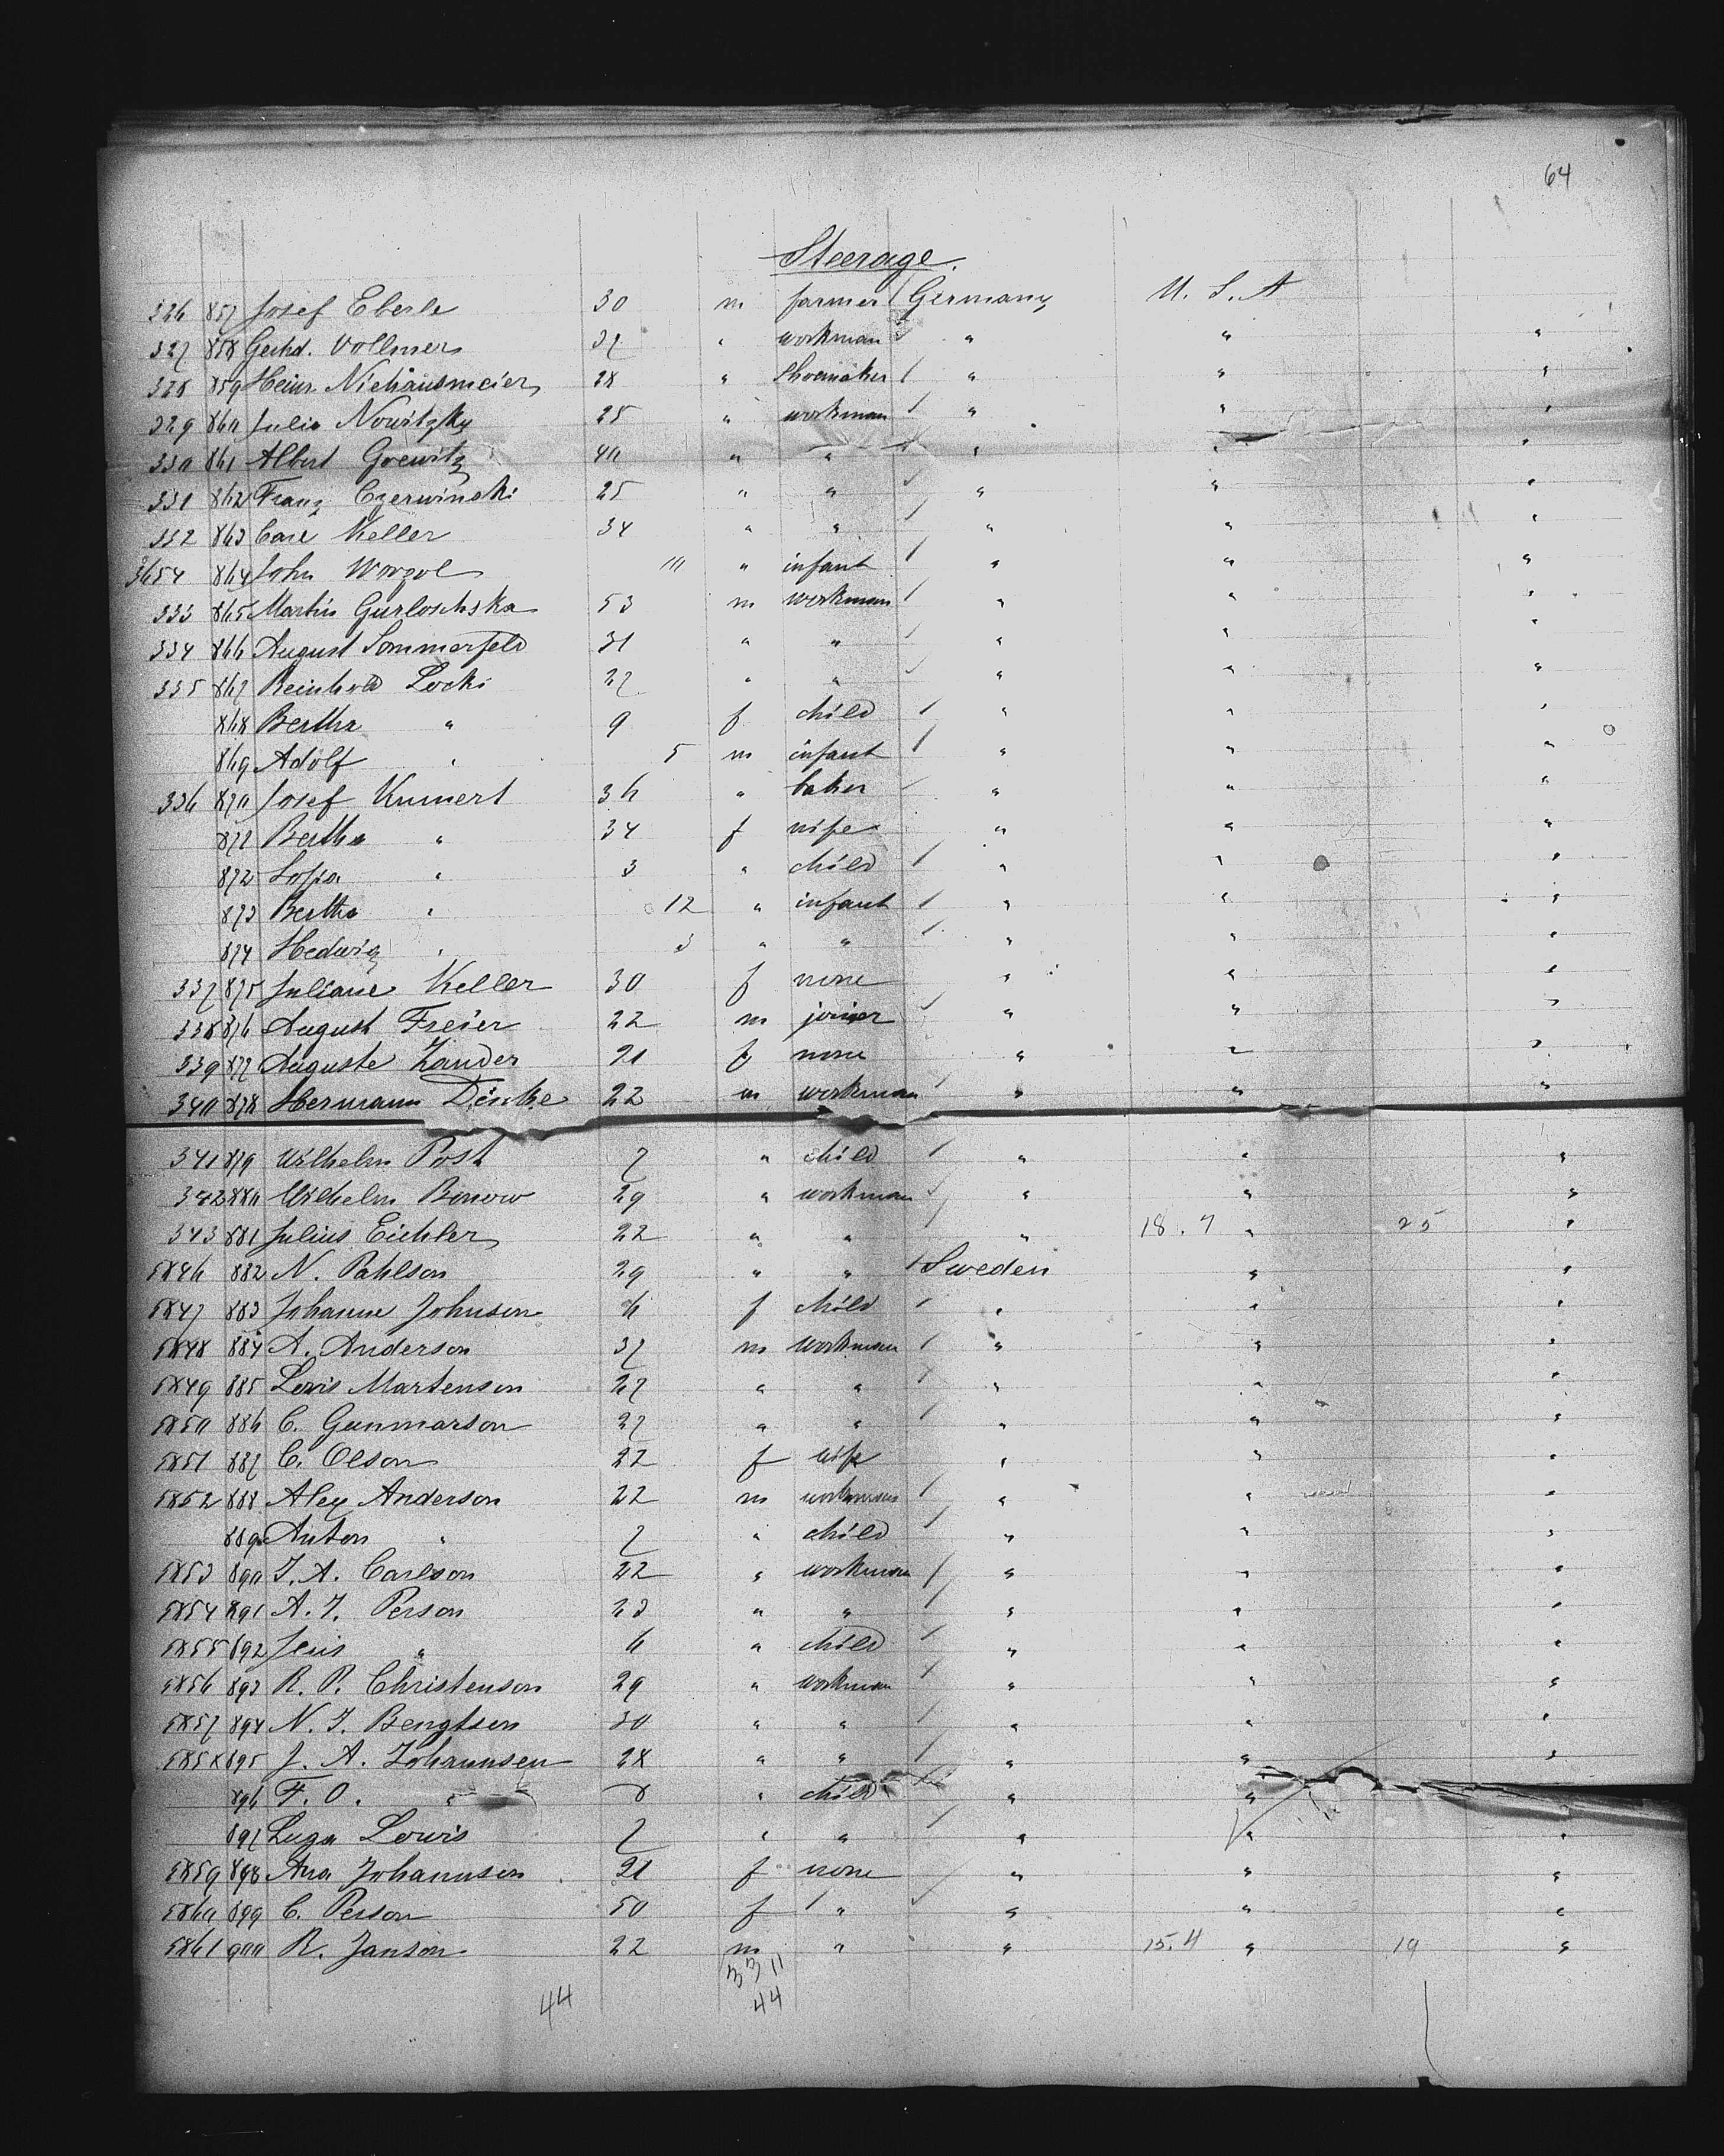 64
Steerage.
326 857 Josef Eberle 30 m farmer Germany U. S. A
327 858 Gerhd. Vollmer 32 " workman " " "
328 859 Heinr. Niehausmeier 28 " Shoemaker " " "
329 860 Julia Nowitzky 25 " workman " " "
330 861 Albert Goewitz 40 " " " " "
331 862 Franz Czerwinski 25 " " " " "
332 863 Carl Keller 34 " " " " "
3654 864 John 10 " infant " " "
333 865 Martin Gurloschska 53 m workman " " "
334 866 August Sommerfeld 31 " " " " "
335 867 Reinhold Locki 27 " " " " "
868 Bertha " 9 f child " " "
869 Adolf " 5 m infant " " "
336 870 Josef Kumert 36 " baker " " "
871 Bertha " 34 f wife " " "
872 " 3 " child " " "
873 Bertha " 12 " infant " " "
874 Hedwig " 3 " " " " "
337 875 Juliane Keller 30 f none " " "
338 876 August Freier 22 m joiner " " "
339 877 Auguste Zander 21 f none " " "
340 878 Hermann Dinke 22 m workman " " "
341 879 Wilhelm Post 7 " child " " "
342 880 Wilhelm Bonow 29 " workman " " "
343 881 Julius Eichler 22 " " " 18.7 " 25 "
5846 882 N. Pahlson 29 " " Sweden " "
5847 883 Johanne Johnson 6 f child " " "
5848 884 A. Anderson 37 m workman " " "
5849 885 Lewis Martenson 27 " " " " "
5850 886 C. Gunmarson 27 " " " " "
5851 887 C. Olson 22 f wife " " "
5852 888 Alex Anderson 22 m workman " " "
889 Anton " 7 " child " " "
5853 890 J. A. Carlson 22 " workman " " "
5854 891 A. J. Person 23 " " " " "
5855 892 Jens " 6 " child " " "
5856 893 R. P. Christenson 29 " workman " " "
5857 894 N. J. Bengtsen 30 " " " " "
5858 895 J. A. Johannsen 28 " " " " "
896 F. O. " 8 " child " "
897 Lewis 7 " " " " "
5859 898 Ana Johannsen 21 f none " " "
5860 899 C. Person 50 f " " " "
5861 900 R. Janson 22 m " " 15.4 " 19 "
33 11
44 44